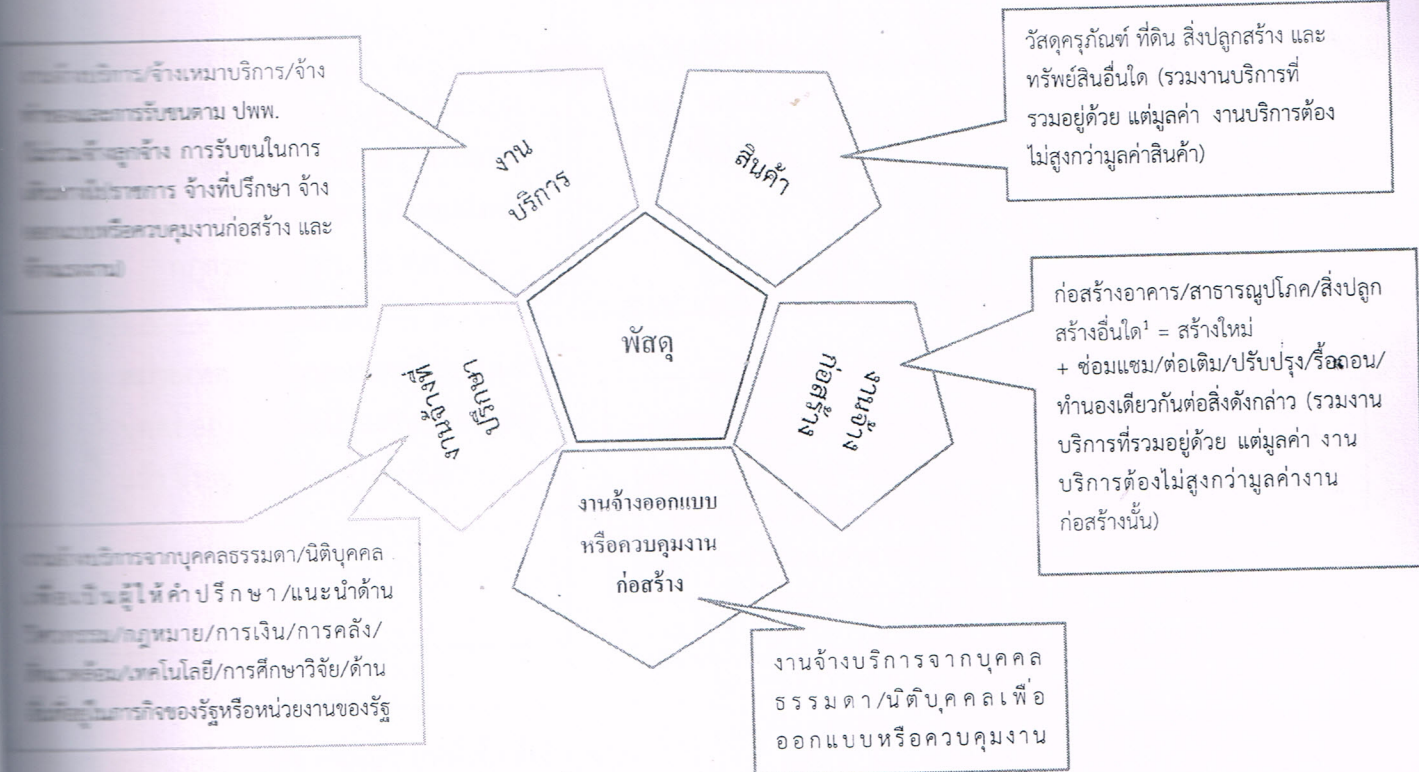 งานจ้างบริการ/จ้างเหมาบริการ/จ้าง
และการรับขนตาม ปพพ.
ลูกจ้าง การรับขนในการ
ราชการ จ้างที่ปรึกษา จ้าง
หรือควบคุมงานก่อสร้าง และ
งาน
บริการ
สินค้า
วัสดุครุภัณฑ์ ที่ดิน สิ่งปลูกสร้าง และ
ทรัพย์สินอื่นใด (รวมงานบริการที่
รวมอยู่ด้วย แต่มูลค่า งานบริการต้อง
ไม่สูงกว่ามูลค่าสินค้า)
พัสดุ
งานจ้าง
ก่อสร้าง
ก่อสร้างอาคาร/สาธารณูปโภค/สิ่งปลูก
สร้างอื่นใด¹ = สร้างใหม่
+ ซ่อมแซม/ต่อเติม/ปรับปรุง/รื้อถอน/
ทำนองเดียวกันต่อสิ่งดังกล่าว (รวมงาน
บริการที่รวมอยู่ด้วย แต่มูลค่า งาน
บริการต้องไม่สูงกว่ามูลค่างาน
ก่อสร้างนั้น)
งานจ้างที่
ปรึกษา
บริการจากบุคคลธรรมดา/นิติบุคคล
ผู้ให้คำปรึกษา/แนะนำด้าน
/กฎหมาย/การเงิน/การคลัง/
/เทคโนโลยี/การศึกษาวิจัย/ด้าน
ภารกิจของรัฐหรือหน่วยงานของรัฐ
งานจ้างออกแบบ
หรือควบคุมงาน
ก่อสร้าง
งานจ้างบริการจากบุคคล
ธรรมดา/นิติบุคคลเพื่อ
ออกแบบหรือควบคุมงาน